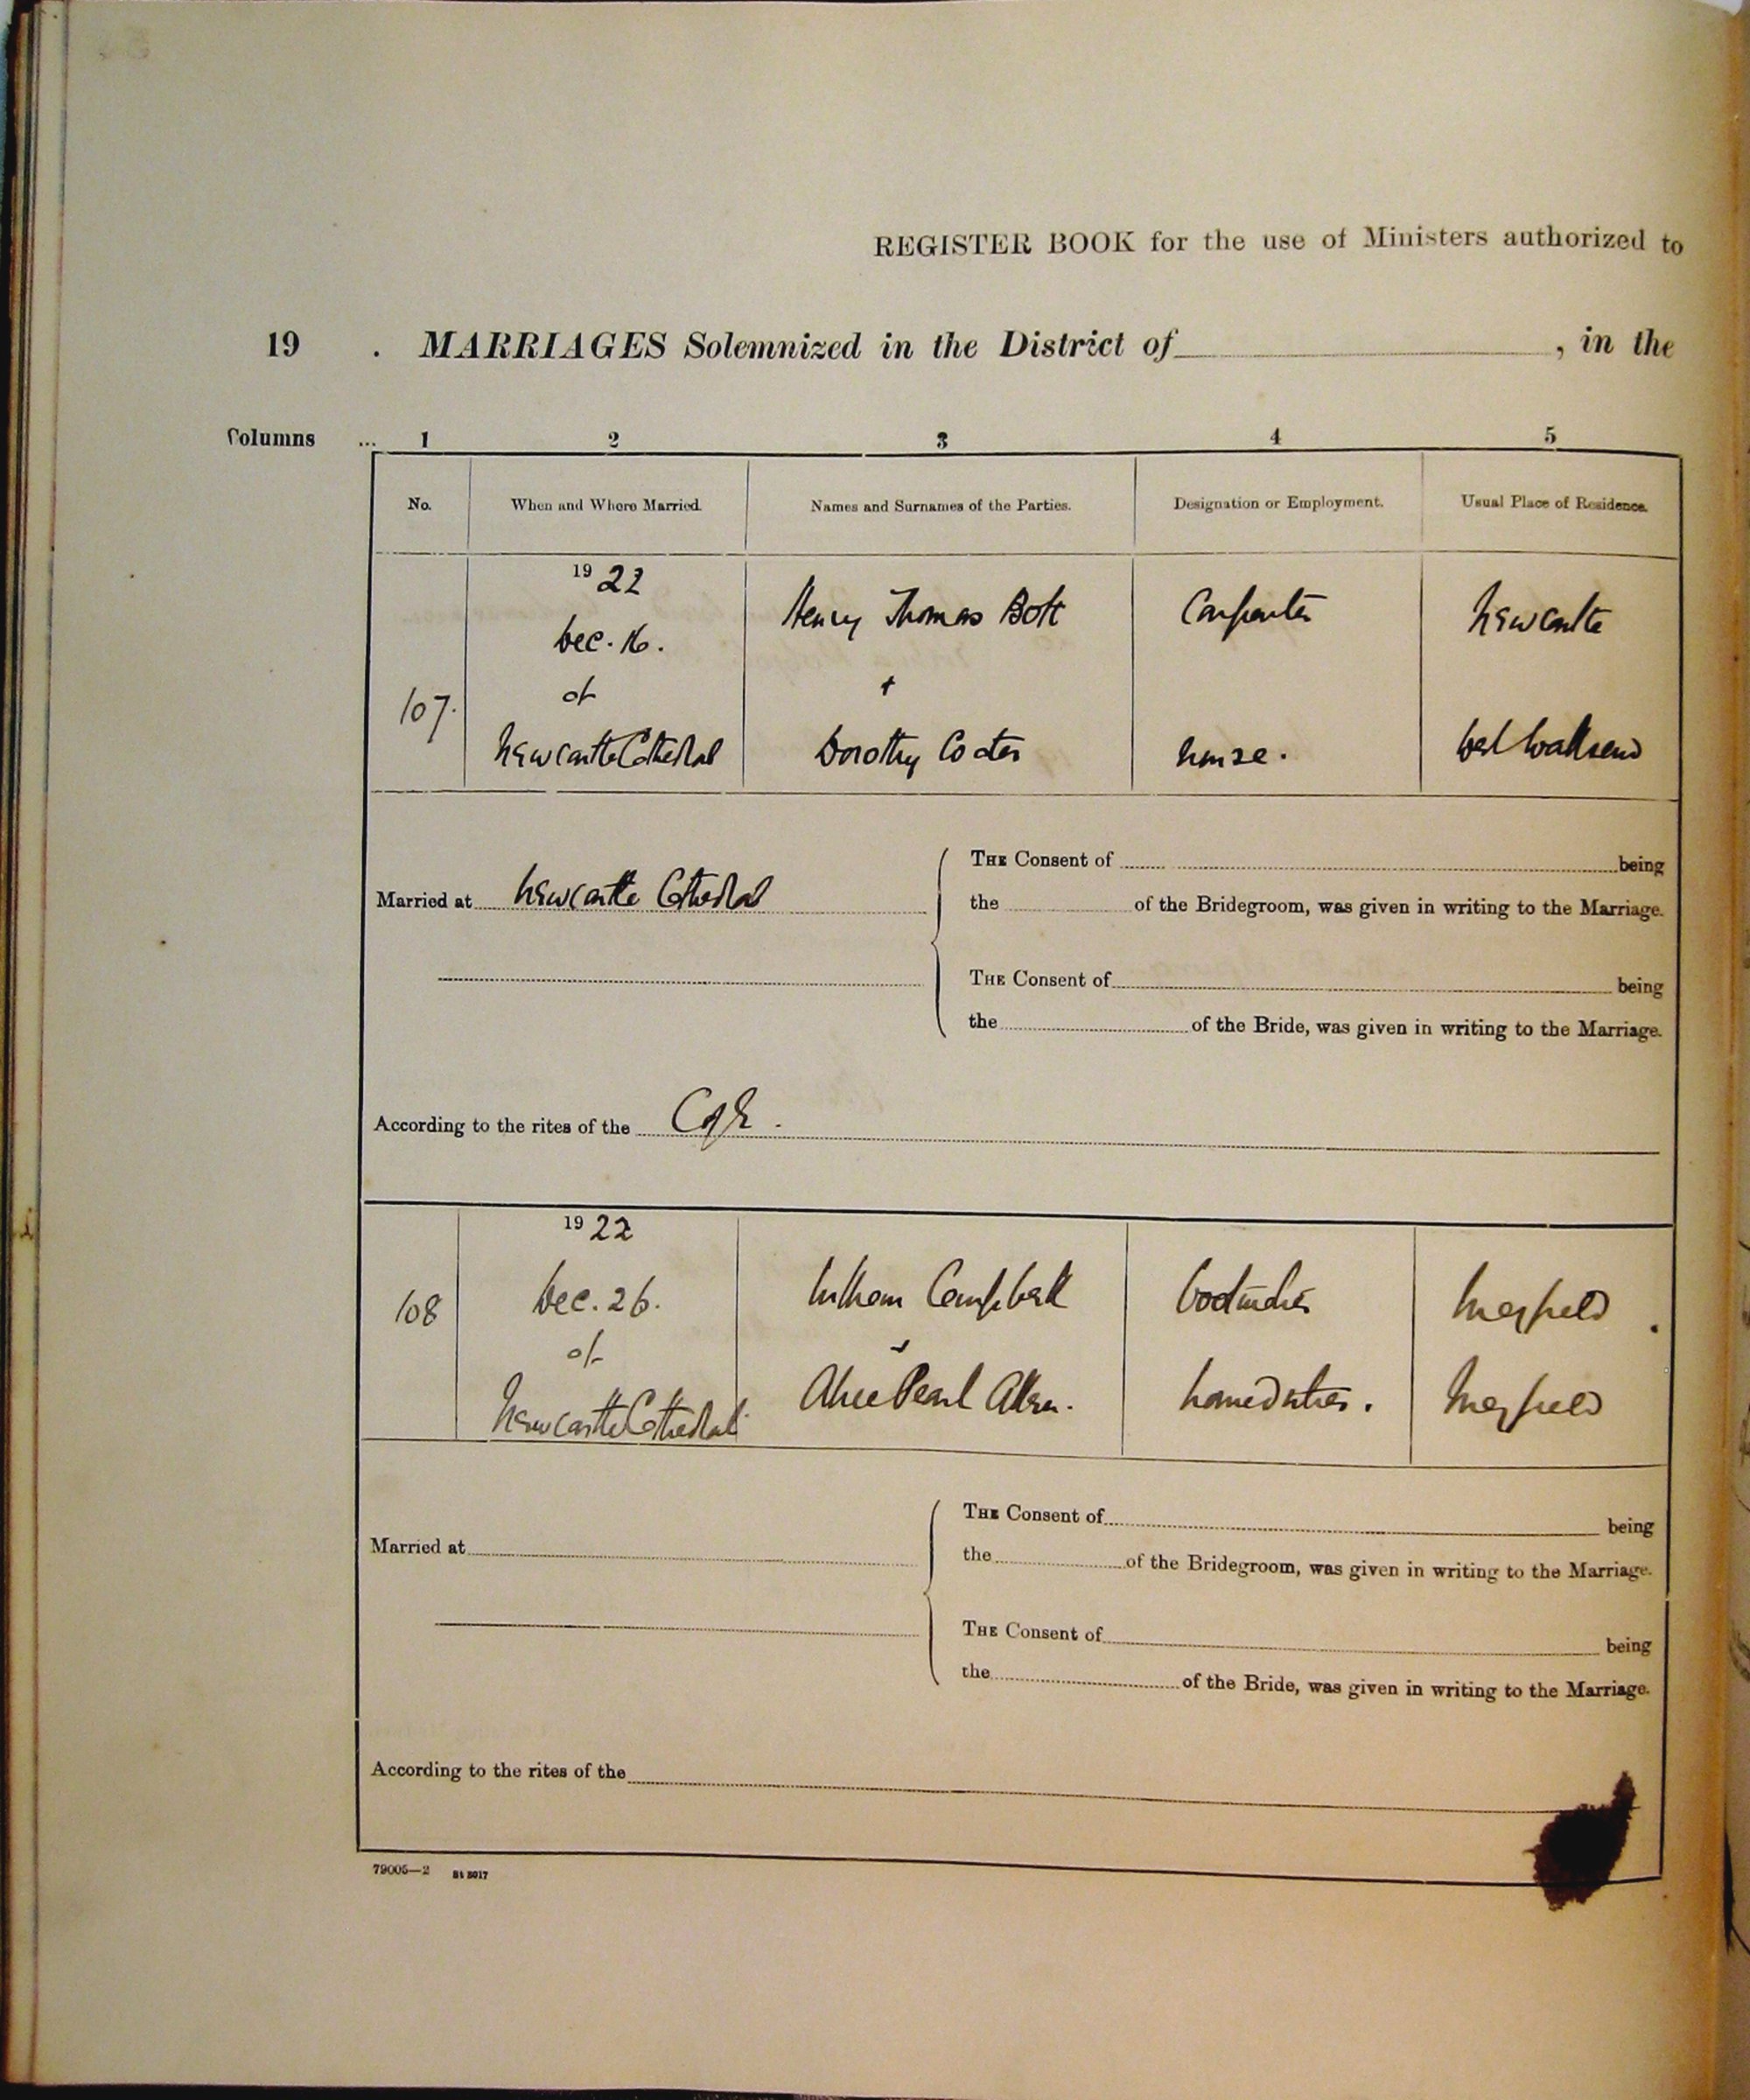 REGISTER BOOK for the use of Ministers authorized to
19 . MARRIAGES Solemnized in the District of , in the
Columns ... 1 2 3 4 5
No. When and Where Married. Names and Surnames of the Parties. Designation or Employment. Usual Place of Residence.
1922
Henry Thomas Bott Carpenter Newcastle
Dec. 16.
at +
107.
Newcastle Cathedral Dorothy Coates nurse. West Wallsend
THE Consent of being
Married at Newcastle Cathedral
the of the Bridegroom, was given in writing to the Marriage.
THE Consent of being
the of the Bride, was given in writing to the Marriage.
According to the rites of the C of E.
1922
108 Dec. 26. William Campbell Mayfield
at
Newcastle Cathedral Alice Pearl Allen. home duties. Mayfield
THE Consent of being
Married at
the of the Bridegroom, was given in writing to the Marriage.
THE Consent of being
the of the Bride, was given in writing to the Marriage.
According to the rites of the
79005—2 St 8017